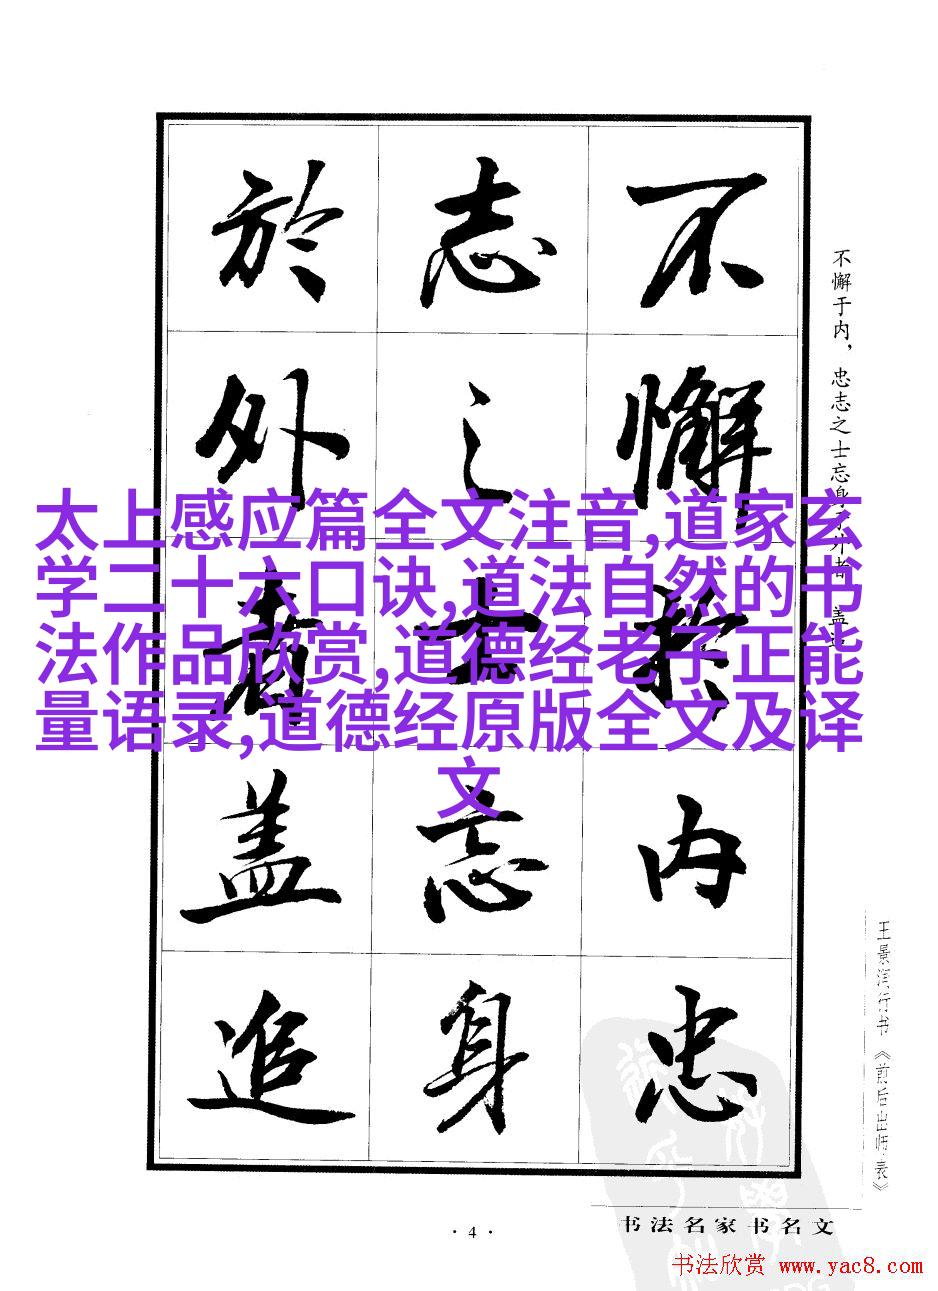 不懈於内忠
志之士忘身
於外者盖追
不懈于内，忠志之士忘身于外者，盖追
太上感应篇全文注音,道家玄
学二十六口诀,道法自然的书
法作品欣赏,道德经老子正能
量语录,道德经原版全文及译
文
王景芬行书《前后出师表》
书法名家书名文
·4·
书法欣赏 www.yac8.com